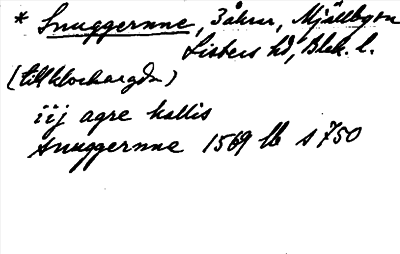 * Snuggernne, 3 åkrar, Mjällby sn
Listers hd, Blek. l.
(till klockargdn)
iij agre kallis
snuggernne 1569 Jb s 750